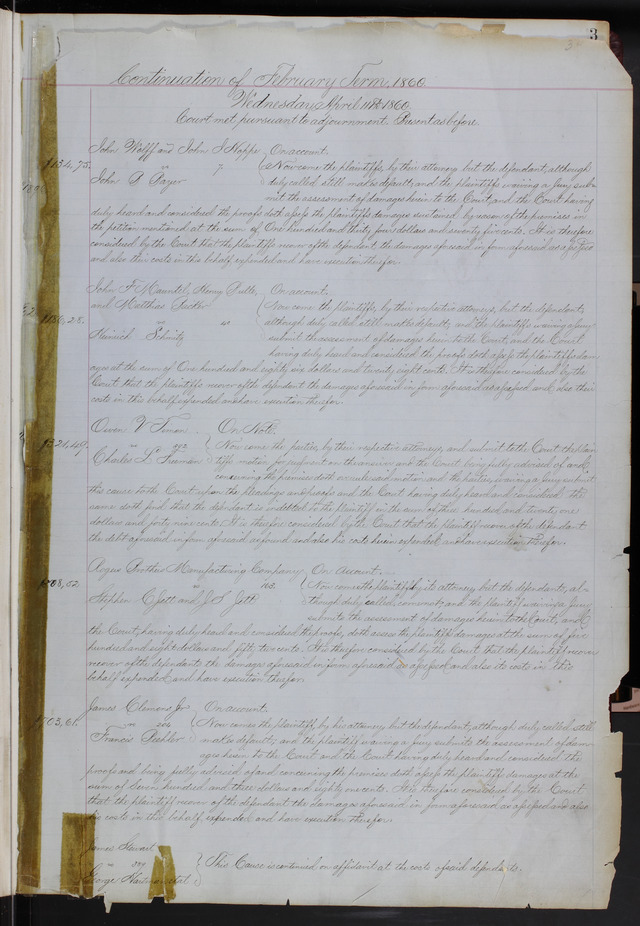 3
Continuation of February Term, 1860
Wednesday April 11th 1860
Court met pursuant to adjournment. Present as before.
John Wolff and John S Hoppe On account.
$134,75. vs Now come the plaintiffs, by their attorney but the defendant, although
John B Bayer duly called still makes default, and the plaintiffs waiving a jury sub-
mit the assessment of damages herein to the Court and the Court having
duly heard and considered the proofs doth assess the plaintiffs damages sustained by reason of the premises in
the petition mentioned at the sum of One hundred and thirty four dollars and seventy five cents. It is therefore
considered by the Court that the plaintiffs recover of the defendant, the damages aforesaid in form aforesaid as assessed
and also their costs in this behalf expended and have execution therefor.
John F Henry On account.
and Matthias Now come the plaintiffs, by their respective attorneys, but the defendant,
186,28. vs although duly called still makes default, and the plaintiffs waiving a jury
Heinrich Schmitz submit the assessment of damages herein to the Court, and the Court
having duly heard and considered the proofs doth assess the plaintiffs dam-
ages at the sum of One hundred and eighty six dollars and twenty eight cents. It is therefore considered by the
Court that the plaintiffs recover of the defendant the damages aforesaid in form aforesaid as assessed and also their
costs in this behalf expended and have execution therefor.
Owen V Timon On Note.
$321,49. vs Now come the parties, by their respective attorneys, and submit to the Court the plain
Charles L Freeman tiffs motion for judgment on the answer and the Court being fully advised of and
concerning the premises doth overrule said motion and the parties, waiving a jury submit
this cause to the Court upon the pleadings and proofs and the Court having duly heard and considered the
same doth find that the defendant is indebted to the plaintiff in the sum of three hundred and twenty one
dollars and forty nine cents. It is therefore considered by the Court that the plaintiff recover of the defendant
the debt aforesaid in form aforesaid as found and also his costs herein expended, and have execution therefor.
Brothers Manufacturing Company On Account.
508,52. vs Now comes the plaintiff by its attorney but the defendants, al-
Stephen C Jett and J S Jett though duly called, come not and the plaintiff waiving a jury
submits the assessment of damages herein to the Court, and
the Court, having duly heard and considered the proofs, doth assess the plaintiff damages at the sum of five
hundred and eight dollars and fifty two cents. It is therefore considered by the Court that the plaintiff recover
recover of the defendants the damages aforesaid in form aforesaid as assessed and also its costs in this
behalf expended and have execution therefor.
James Clemens Jr On account.
703,61. vs Now comes the plaintiff by his attorney but the defendant, although duly called still
Francis makes default; and the plaintiff waiving a jury submits the assessment of dam-
ages herein to the Court and the Court having duly heard and considered the
proofs and being fully advised of and concerning the premises doth assess the plaintiff damages at the
sum of Seven hundred and three dollars and sixty one cents. It is therefore considered by the Court
that the plaintiff recover of the defendant the damages aforesaid in form aforesaid as assessed and also
his costs in this behalf expended and have execution therefor
James Stewart
vs This Cause is continued on affidavit at the costs of said defendants.
George Hartman et al